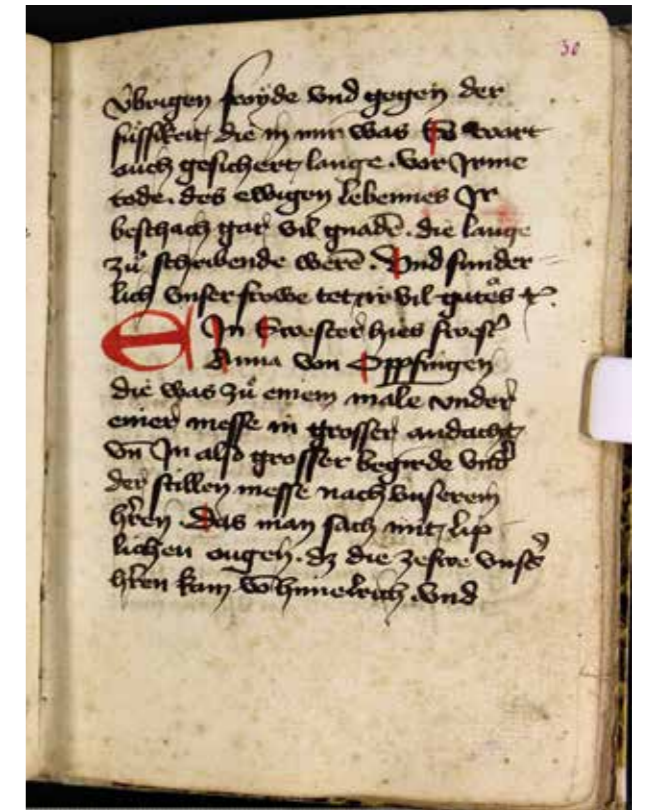 30
übrigen froyde vnd gegen der
süssikeit die in mir was Es wart
ouch gesichert lange vor Irme
tode. des ewigen lebennes Ir
beschach gar vil gnadē. die lange
zuͦ schribende werē. Vnd sunder
lich vnser frowe tet ir vil guͦtes
EIn Swester hies swest̾
Anna von
die was zuͦ einem male vnder
einer messe in grosser andacht
vn̄ In also grosser begirde vnd̾
der stillen messe nach vnserem
h̾ren Das man sach mit lip
lichen ougen. dz die zeswe vns̾s
h̾ren kam vō himelrich. vnd